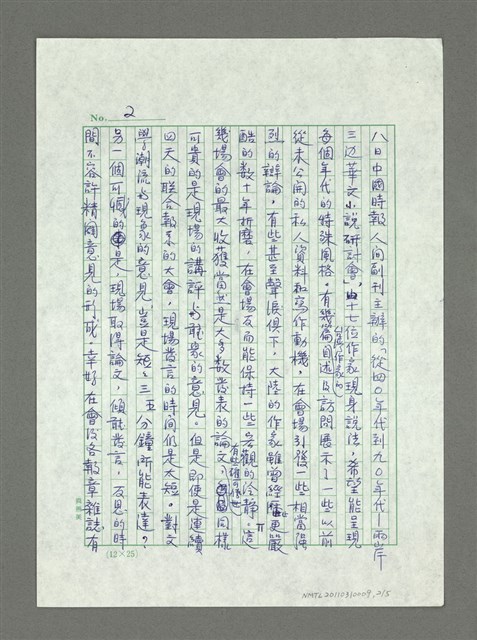 No. 2
八日中國時報人間副刊主辦的「從四〇年代到九〇年代—兩岸
三边華文小說研討會」,由十七位作家現身說法,希望能呈現
每個年代的特殊風格。有幾篇台灣作家的自述及訪問展示了一些以前
從未公開的私人資料和寫作動機,在會場引發一些相當強
烈的辯論,有些甚至聲淚俱下,大陸的作家雖曾經歷更嚴
酷的數十年折磨,在會場反而能保持一些客觀的冷靜。這
幾場會的最大收獲當然是大多數發表的論文,同樣
可貴的是現場的講評与聽衆的意見。但是即使是連續
四天的聯合報系的大會,現場發言的時間仍是太短。對文
學潮流与現象的意見豈是短短三五分鐘所能表達。
另一個可憾的是,現場取得論文,傾聽發言,反思的時
間不容許精闢意見的形成,幸好在會後各報章雜誌有
(12×25)
NMTL20110310009, 2/5